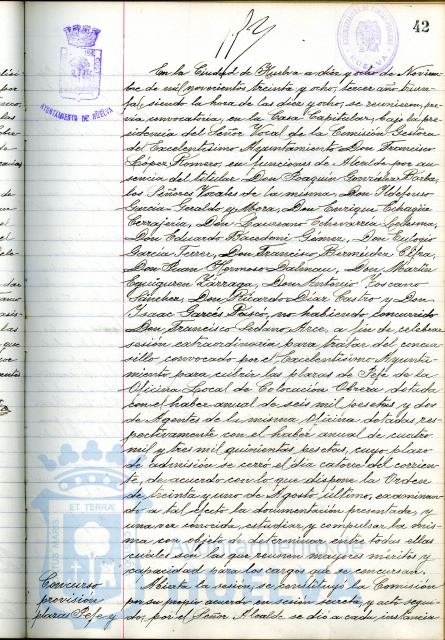 42
AYUNTAMIENTO DE HUELVA
HUELVA
En la Ciudad de Huelva a diez y ocho de Noviem-
bre de mil novecientos treinta y ocho, tercer año triun-
fal, siendo la hora de las diez y ocho, se reunieron, pre-
via convocatoria, en la Casa Capitular, bajo la pre-
sidencia del Señor Vocal de la Comisión Gestora
del Excelentísimo Ayuntamiento Don Francisco
López Romero, en funciones de Alcalde por au-
sencia del titular Don Joaquín González Barba,
los Señores Vocales de la misma, Don Ildefonso
García Geraldo y Mora, Don Enrique Echagüe
Cerrajería, Don Laureano Echevarría Ledesma,
Don Eduardo Gómez, Don Eulogio
García Ferrer, Don Francisco Bermúdez
Don Juan Hermoso Dalmau, Don Martín
Eguiguren Zarraga, Don Antonio Toscano
Sánchez, Don Ricardo Díaz Castro y Don
Isaac Garcés no habiendo concurrido
Don Francisco Sedano Arce, a fin de celebrar
sesión extraordinaria para tratar del concur-
sillo convocado por el Excelentísimo Ayunta-
miento para cubrir las plazas de Jefe de la
Oficina Local de Colocación Obrera dotada
con el haber anual de seis mil pesetas, y dos
de Agentes de la misma Oficina dotadas, res-
pectivamente con el haber anual de cuatro
mil y tres mil quinientas pesetas, cuyo plazo
de admisión se cerró el día catorce del corrien-
te, de acuerdo con lo que dispone la Orden
de treinta y uno de Agosto último, examinan-
do a tal efecto la documentación presentada, y
una vez conocida, estudiar y compulsar la mis-
ma con objeto de determinar entre todas ellas
cuales son las que reunen mayores méritos y
capacidad para los cargos que se concursan.
Concurso
provisión
plazas Jefe y
Abierta la sesión, se constituyó la Comisión
por su propio acuerdo en sesión secreta, y acto segui-
do, por el Señor Alcalde se dio a cada instancia
ET TERRAE